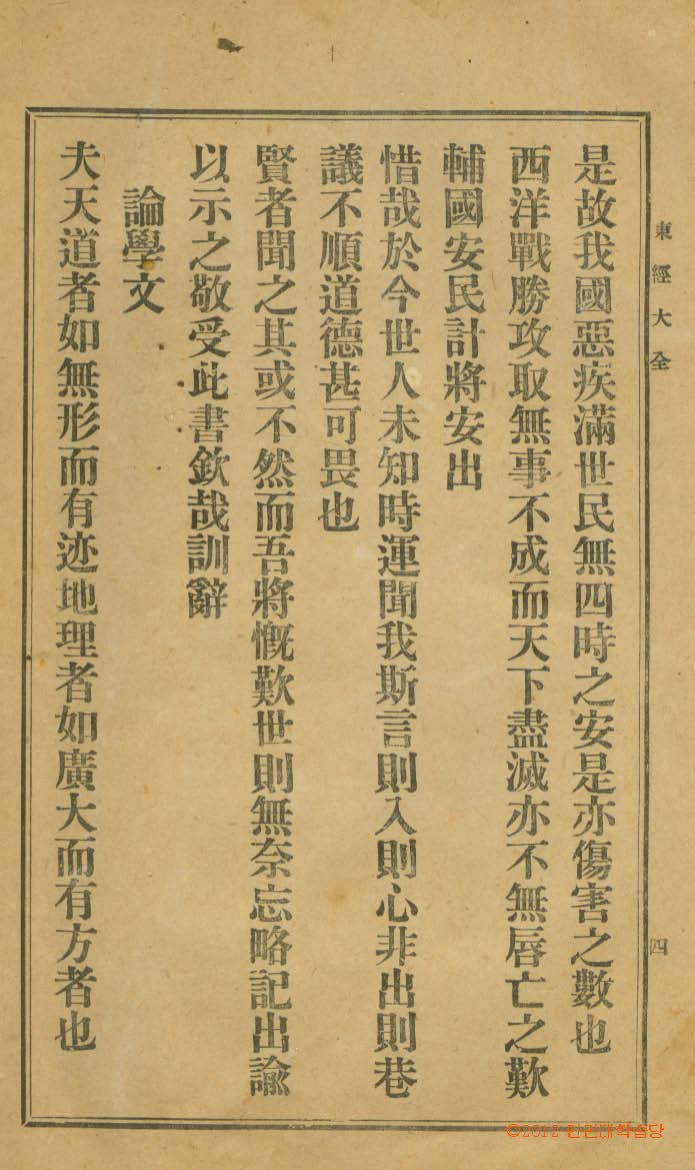 東經大全
四
是故我國惡疾滿世民無四時之安是亦傷害之數也
西洋戰勝攻取無事不成而天下盡滅亦不無脣亡之歎
輔國安民計將安出
惜哉於今世人未知時運聞我斯言則入則心非出則巷
議不順道德甚可畏也
賢者聞之其或不然而吾將慨歎世則無奈忘略記出諭
以示之敬受此書欽哉訓辭
論學文
夫天道者如無形而有迹地理者如廣大而有方者也
©2012 인민대학습당